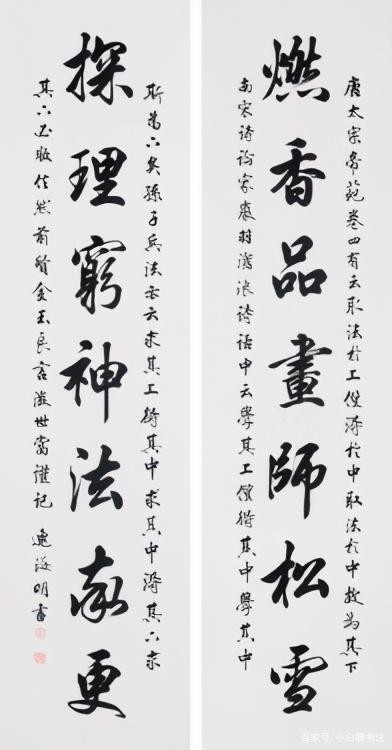 唐太宗帝苑卷四有云取法於工僅得於中取法於中故為其下
燃香品畫師松雪
南宋诗论家嚴羽滄浪詩話中云學其工僅得其中學其中
斯為下矣孫子兵法亦云求其工得其中求其中得其下求
探理窮神法率更
其下必敗信然前賢金玉良言世當謹記 海明書
百家号/小白聊书法